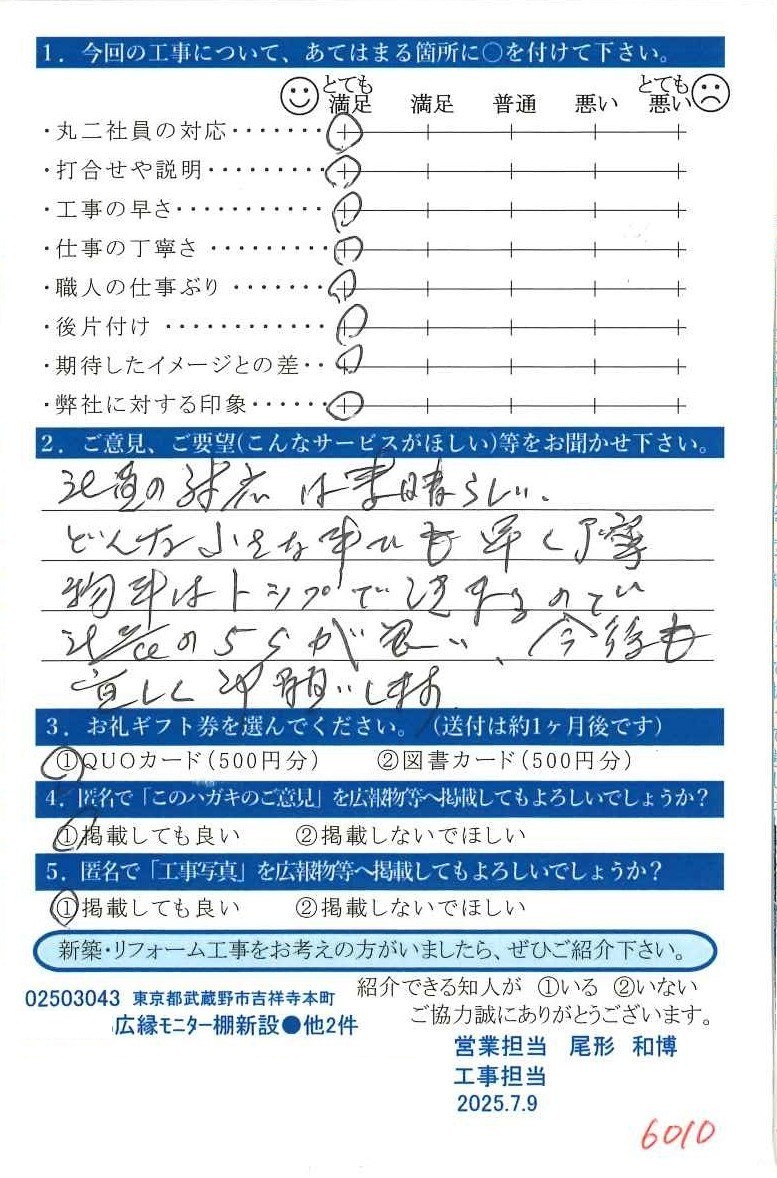 1．今回の工事について、あてはまる箇所に○を付けて下さい。
とても満足 満足 普通 悪い とても悪い
・丸二社員の対応・・・・・・・
・打合せや説明・・・・・・・・・
・工事の早さ・・・・・・・・・・・
・仕事の丁寧さ・・・・・・・・・
・職人の仕事ぶり・・・・・・・
・後片付け・・・・・・・・・・・・
・期待したイメージとの差・・
・弊社に対する印象・・・・・・
2．ご意見、ご要望(こんなサービスがほしい)等をお聞かせ下さい。
社員の対応は素晴らしい、
どんな小さな事でも早く丁寧
物事はトップで決まるので
社の5Sが良い、今後も
宜しくお願いします
3．お礼ギフト券を選んでください。（送付は約1ヶ月後です）
①QUOカード(500円分) ②図書カード(500円分)
4．匿名で「このハガキのご意見」を広報物等へ掲載してもよろしいでしょうか？
①掲載しても良い ②掲載しないでほしい
5．匿名で「工事写真」を広報物等へ掲載してもよろしいでしょうか？
①掲載しても良い ②掲載しないでほしい
新築・リフォーム工事をお考えの方がいましたら、ぜひご紹介下さい。
紹介できる知人が ①いる ②いない
ご協力誠にありがとうございます。
02503043 東京都武蔵野市吉祥寺本町
広縁モニター棚新設●他2件
営業担当 尾形 和博
工事担当
2025.7.9
6010